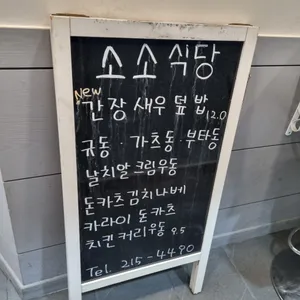 소소식당
New
간장새우덮밥 12.0
규동 · 가츠동 · 부타동
날치알크림우동
돈카츠김치나베
카라이 돈카츠
치킨커리우동 9.5
Tel. 215-4490